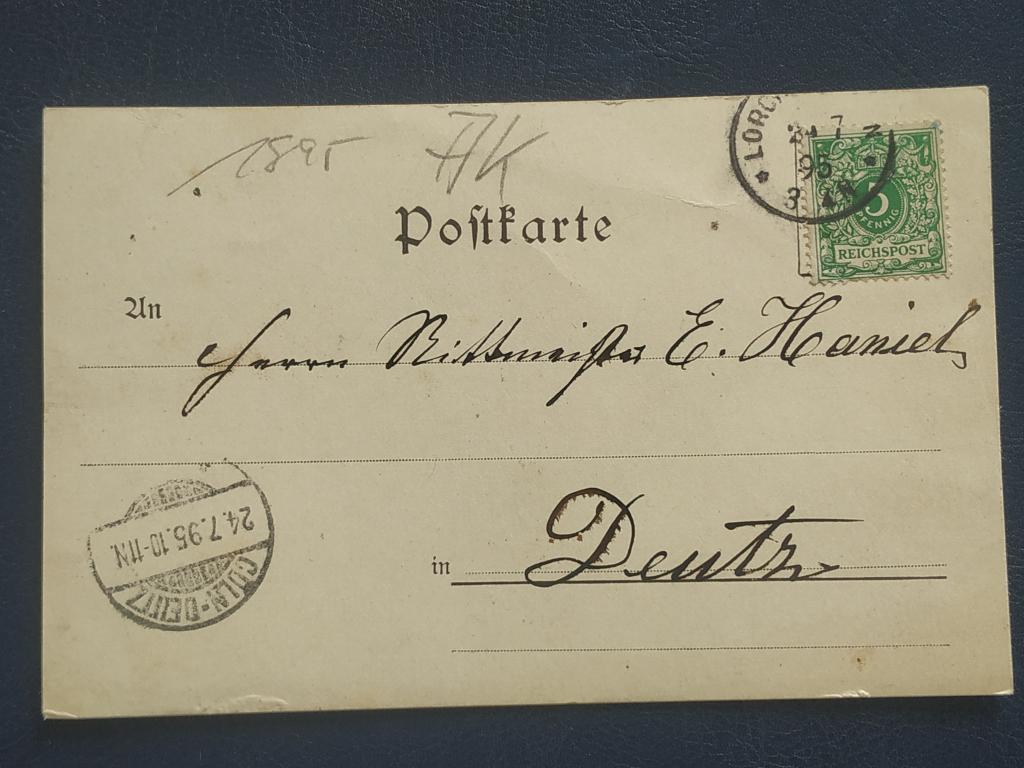 1895 AK
LORC
24 7
95
3
5
PFENNIG
REICHSPOST
Poſtkarte
An
Herrn Rittmeister E. Haniel,
in Deutz
CÖLN-DEUTZ
24.7.95.10-11N.